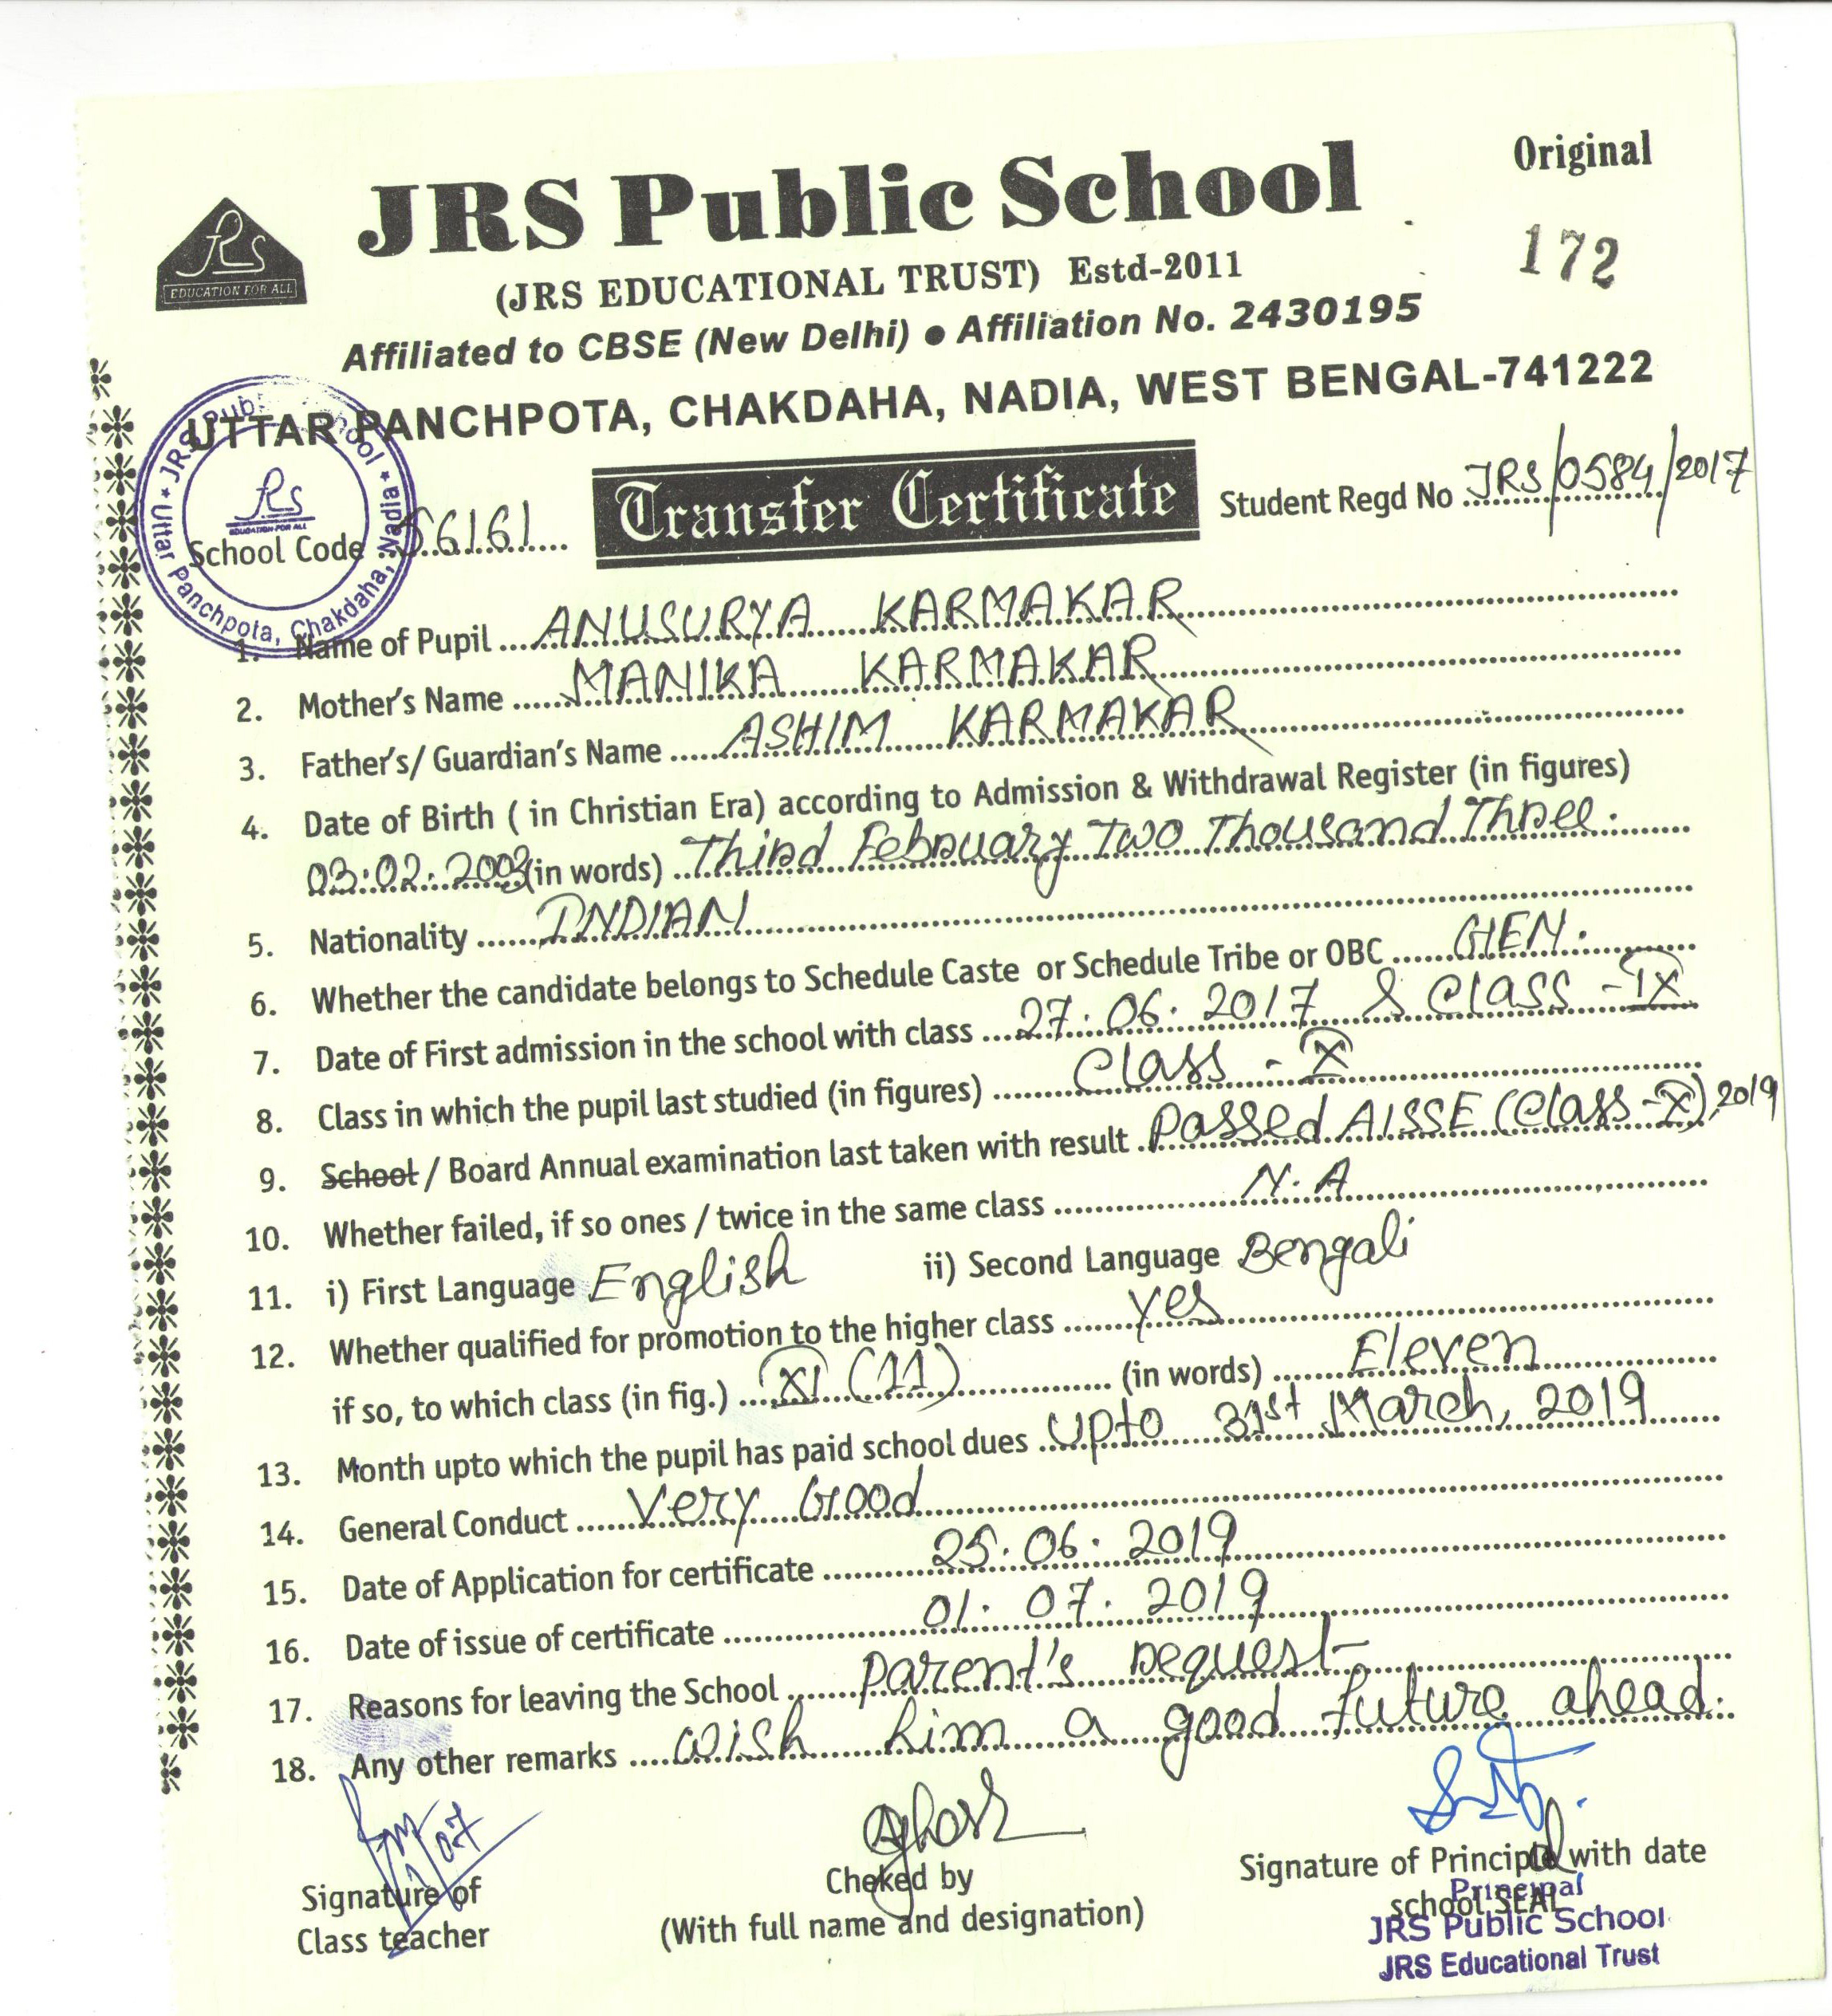 Original
JRS Public School
172
JRS
EDUCATION FOR ALL
(JRS EDUCATIONAL TRUST) Estd-2011
Affiliated to CBSE (New Delhi) ● Affiliation No. 2430195
UTTAR PANCHPOTA, CHAKDAHA, NADIA, WEST BENGAL-741222
JRS Public School * Uttar Panchpota, Chakdaha, Nadia *
JRS
EDUCATION FOR ALL
School Code 56161 Transfer Certificate Student Regd No JRS/0584/2017
1. Name of Pupil ANUSURYA KARMAKAR
2. Mother's Name MANIKA KARMAKAR
3. Father's/ Guardian's Name ASHIM KARMAKAR
4. Date of Birth ( in Christian Era) according to Admission & Withdrawal Register (in figures)
03.02.2003 (in words) Third February Two Thousand Three.
5. Nationality INDIAN
6. Whether the candidate belongs to Schedule Caste or Schedule Tribe or OBC GEN.
7. Date of First admission in the school with class 27.06.2017 & Class - IX
8. Class in which the pupil last studied (in figures) Class - X
9. School / Board Annual examination last taken with result Passed AISSE (Class-X), 2019
10. Whether failed, if so ones / twice in the same class N.A
11. i) First Language English ii) Second Language Bengali
12. Whether qualified for promotion to the higher class Yes
if so, to which class (in fig.) XI (11) (in words) Eleven
13. Month upto which the pupil has paid school dues Upto 31st March, 2019
14. General Conduct Very Good
15. Date of Application for certificate 25.06.2019
16. Date of issue of certificate 01.07.2019
17. Reasons for leaving the School Parent's request
18. Any other remarks wish him a good future ahead.
Signature of
Class teacher
Cheked by
(With full name and designation)
Signature of Principal with date
school SEAL
Principal
JRS Public School
JRS Educational Trust